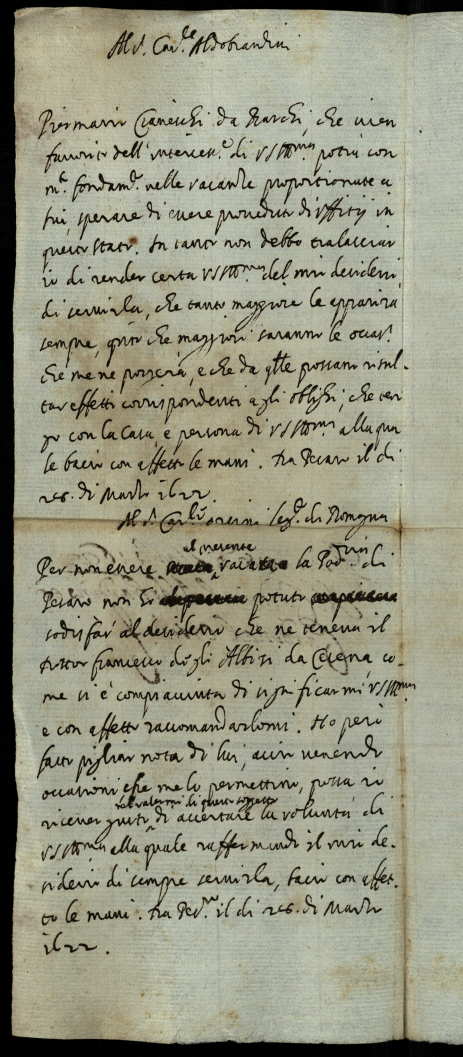 Al S.r Car.le Aldobrandini
Piermaria Cianeschi da Marchi, che vien
favorito dell'interces.ne di VSIll.ma potrà con
m.to fondam.to nelle vacanze proportionate a
lui, sperare di essere proveduto di Uffitij in
questo Stato. In tanto non debbo tralasciar
io di render certa VSIll.ma del mio desiderio
di servirla, che tanto maggiore le apparirà
sempre, quanto che maggiori saranno le occas.ni
che me ne porgerà, e che da q.lle possano risul-
tar effetti corrispondenti agli oblighi, che ten
go con la Casa, e persona di VSIll.ma alla qua
le bacio con affetto le mani. Da Pesaro il dì
26. di Marzo 1622.
Al S.r Car.l Orsini leg.to di Romagna
Per non essere al presente vacante la Pod.ria di
Pesaro non ho potuto
sodisfar al desiderio che ne teneva il
Dottor Francesco degli Albizi da Cesena, co-
me si è compiaciuta di significarmi VSIll.ma
e con affetto raccomandarlomi. Ho però
fatto pigliar nota di lui, acciò venendo
occasioni che me lo permettino, possa io
ricever gusto di valermi di questo soggetto di accertare la voluntà di
VSIll.ma alla quale raffermando il mio de-
siderio di sempre servirla, bacio con affet-
to le mani. Da Pes.ro il dì 26. di Marzo
1622.